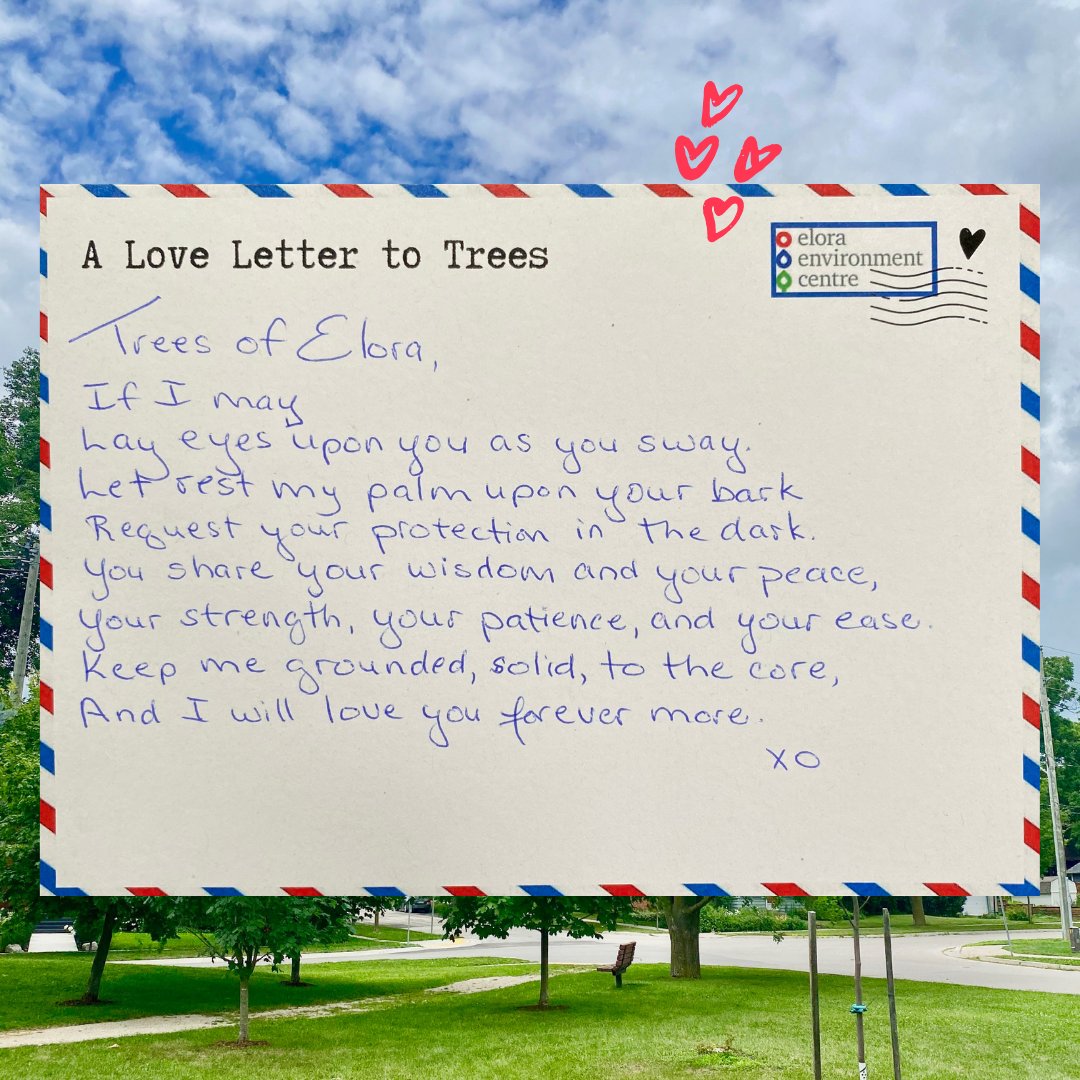 A Love Letter to Trees
elora
environment
centre
Trees of Elora,
If I may
Lay eyes upon you as you sway.
Let rest my palm upon your bark
Request your protection in the dark.
You share your wisdom and your peace,
Your strength, your patience, and your ease.
Keep me grounded, solid, to the core,
And I will love you forever more.
XO